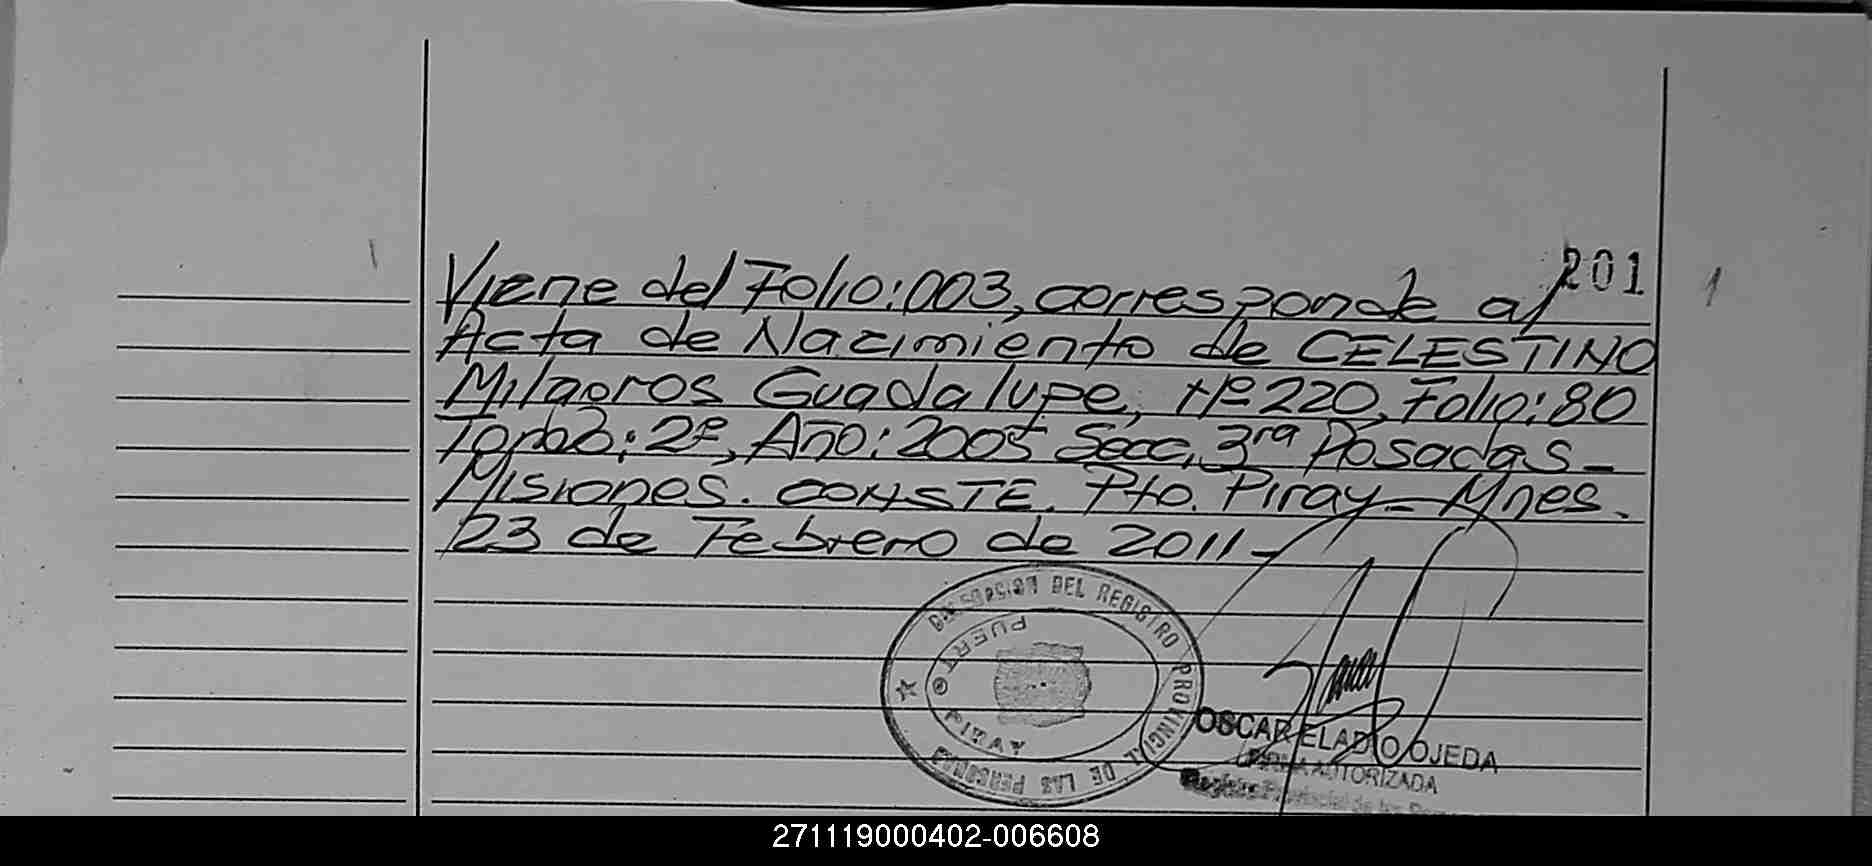 201
Viene del Folio: 003, corresponde al
Acta de Nacimiento de CELESTINO
Milagros Guadalupe, Nº 220, Folio: 80
Tomo: 2º, Año: 2005 Secc. 3ra Posadas-
Misiones. CONSTE. Pto. Piray-Mnes.
23 de Febrero de 2011-
DEL REGISTRO PROVINCIAL DE LAS PERSONAS
PUERTO PIRAY
OSCAR ELADIO OJEDA
FIRMA AUTORIZADA
Registro Provincial de las
271119000402-006608